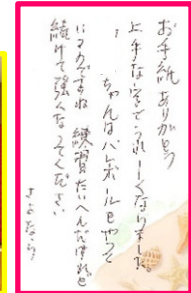 お手紙ありがとう
上手な字でうれしくなりました。
ちゃんはバレーボールをやって
いるのですね 練習たいへんだけれど
続けて強くなってください
さようなら